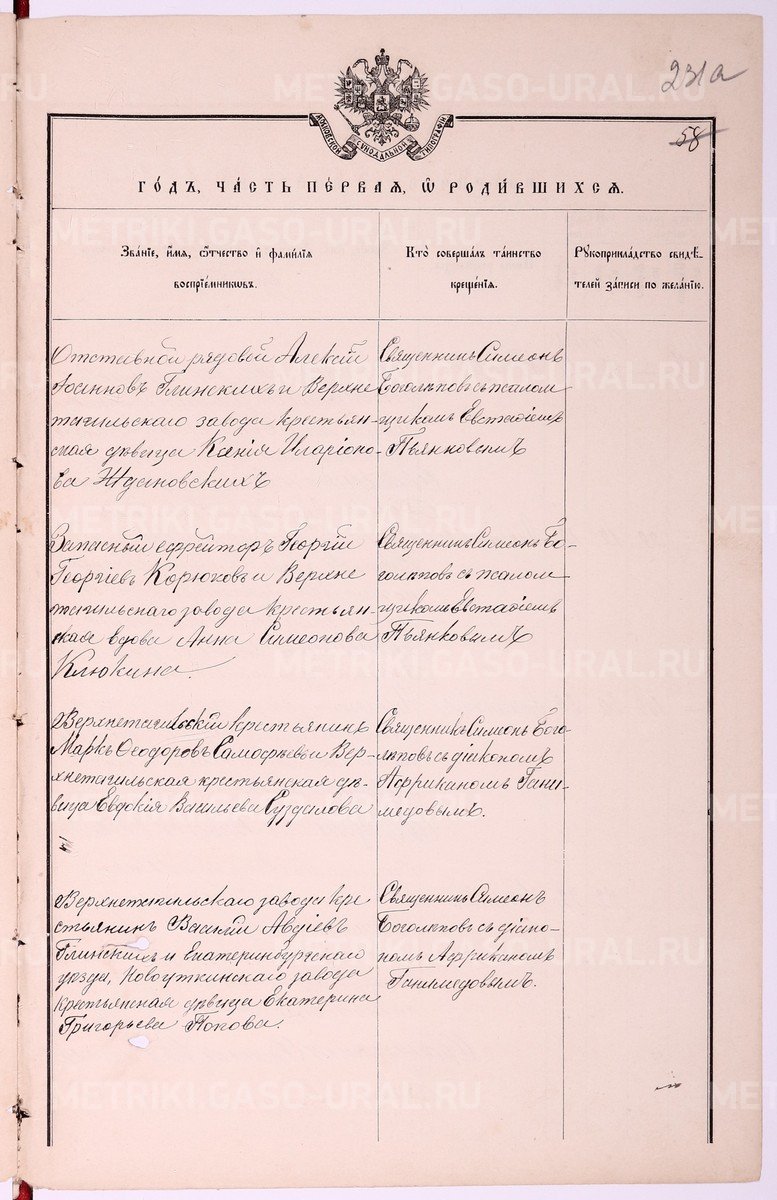 231а
58
МОСКОВСКОЙ СѴНОДАЛЬНОЙ ТИПОГРАФІИ
ГО́ДЪ, ЧА́СТЬ ПЕ́РВАѦ, Ѿ РОДИ́ВШИХСѦ.
Зва́нїе, и҆́мѧ, ѻ҆́тчество и҆ фами́лїѧ
воспрїе́мникѡвъ.
Кто̀ соверша́лъ та́инство
креще́нїѧ.
Рꙋкоприкла́дство свидѣ́-
телей за́писи по жела́нїю.
Отставной рядовой Алексій
Іоанновъ Глинскихъ и Верхне
тагильскаго завода крестьян-
ская дѣвица Ксенія Иларіоно-
ва Ждановскихъ
Священникъ Симеонъ
Боголѣповъ съ псалом
щикомъ Евстафіемъ
Пьянковымъ
Запасный ефрейторъ Георгій
Георгіевъ Корюковъ и Верхне
тагильскаго завода крестьян-
ская вдова Анна Симеонова
Клюкина.
Священникъ Симеонъ Бо-
голѣповъ съ псалом
щикомъ Евстафіемъ
Пьянковымъ
Верхнетагильскій крестьянинъ
Маркъ Ѳеодоровъ Самофѣевъ и Вер-
хнетагильская крестьянская дѣ-
вица Евдокія Васильева Суздалова
Священникъ Симеонъ Бого-
лѣповъ съ діакономъ
Африканомъ Гани-
медовымъ.
Верхнетагильскаго завода кре
стьянинъ Василій Авдіевъ
Глинскихъ и Екатеринбургскаго
уѣзда, Новоуткинскаго завода
крестьянская дѣвица Екатерина
Григорьева Попова.
Священникъ Симеонъ
Боголѣповъ съ діако-
номъ Африканомъ
Ганимедовымъ.
METRIKI.GASO-URAL.RU